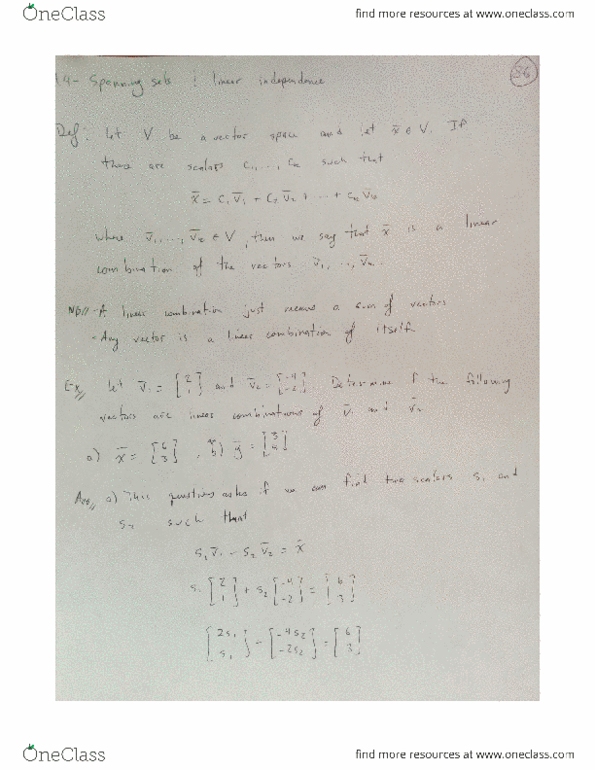 OneClass
find more resources at www.oneclass.com
1.4- Spanning sets & linear independence
86
Def: Let V be a vector space and let x̄ ∈ V. If
there are scalars c₁, ..., cₙ such that
x̄ = c₁v̄₁ + c₂v̄₂ + ... + cₙv̄ₙ
where v̄₁, ..., v̄ₙ ∈ V, then we say that x̄ is a linear
combination of the vectors v̄₁, ..., v̄ₙ.
NB// - A linear combination just means a sum of vectors
- Any vector is a linear combination of itself
Ex// Let v̄₁ = [2 1] and v̄₂ = [-4 -2]. Determine if the following
vectors are linear combinations of v̄₁ and v̄₂
a) x̄ = [6 3], b) ȳ = [3 4]
Ans// a) This questions asks if we can find two scalars s₁ and
s₂ such that
s₁v̄₁ + s₂v̄₂ = x̄
s₁ [2 1] + s₂ [-4 -2] = [6 3]
[2s₁ s₁] + [-4s₂ -2s₂] = [6 3]
OneClass
find more resources at www.oneclass.com